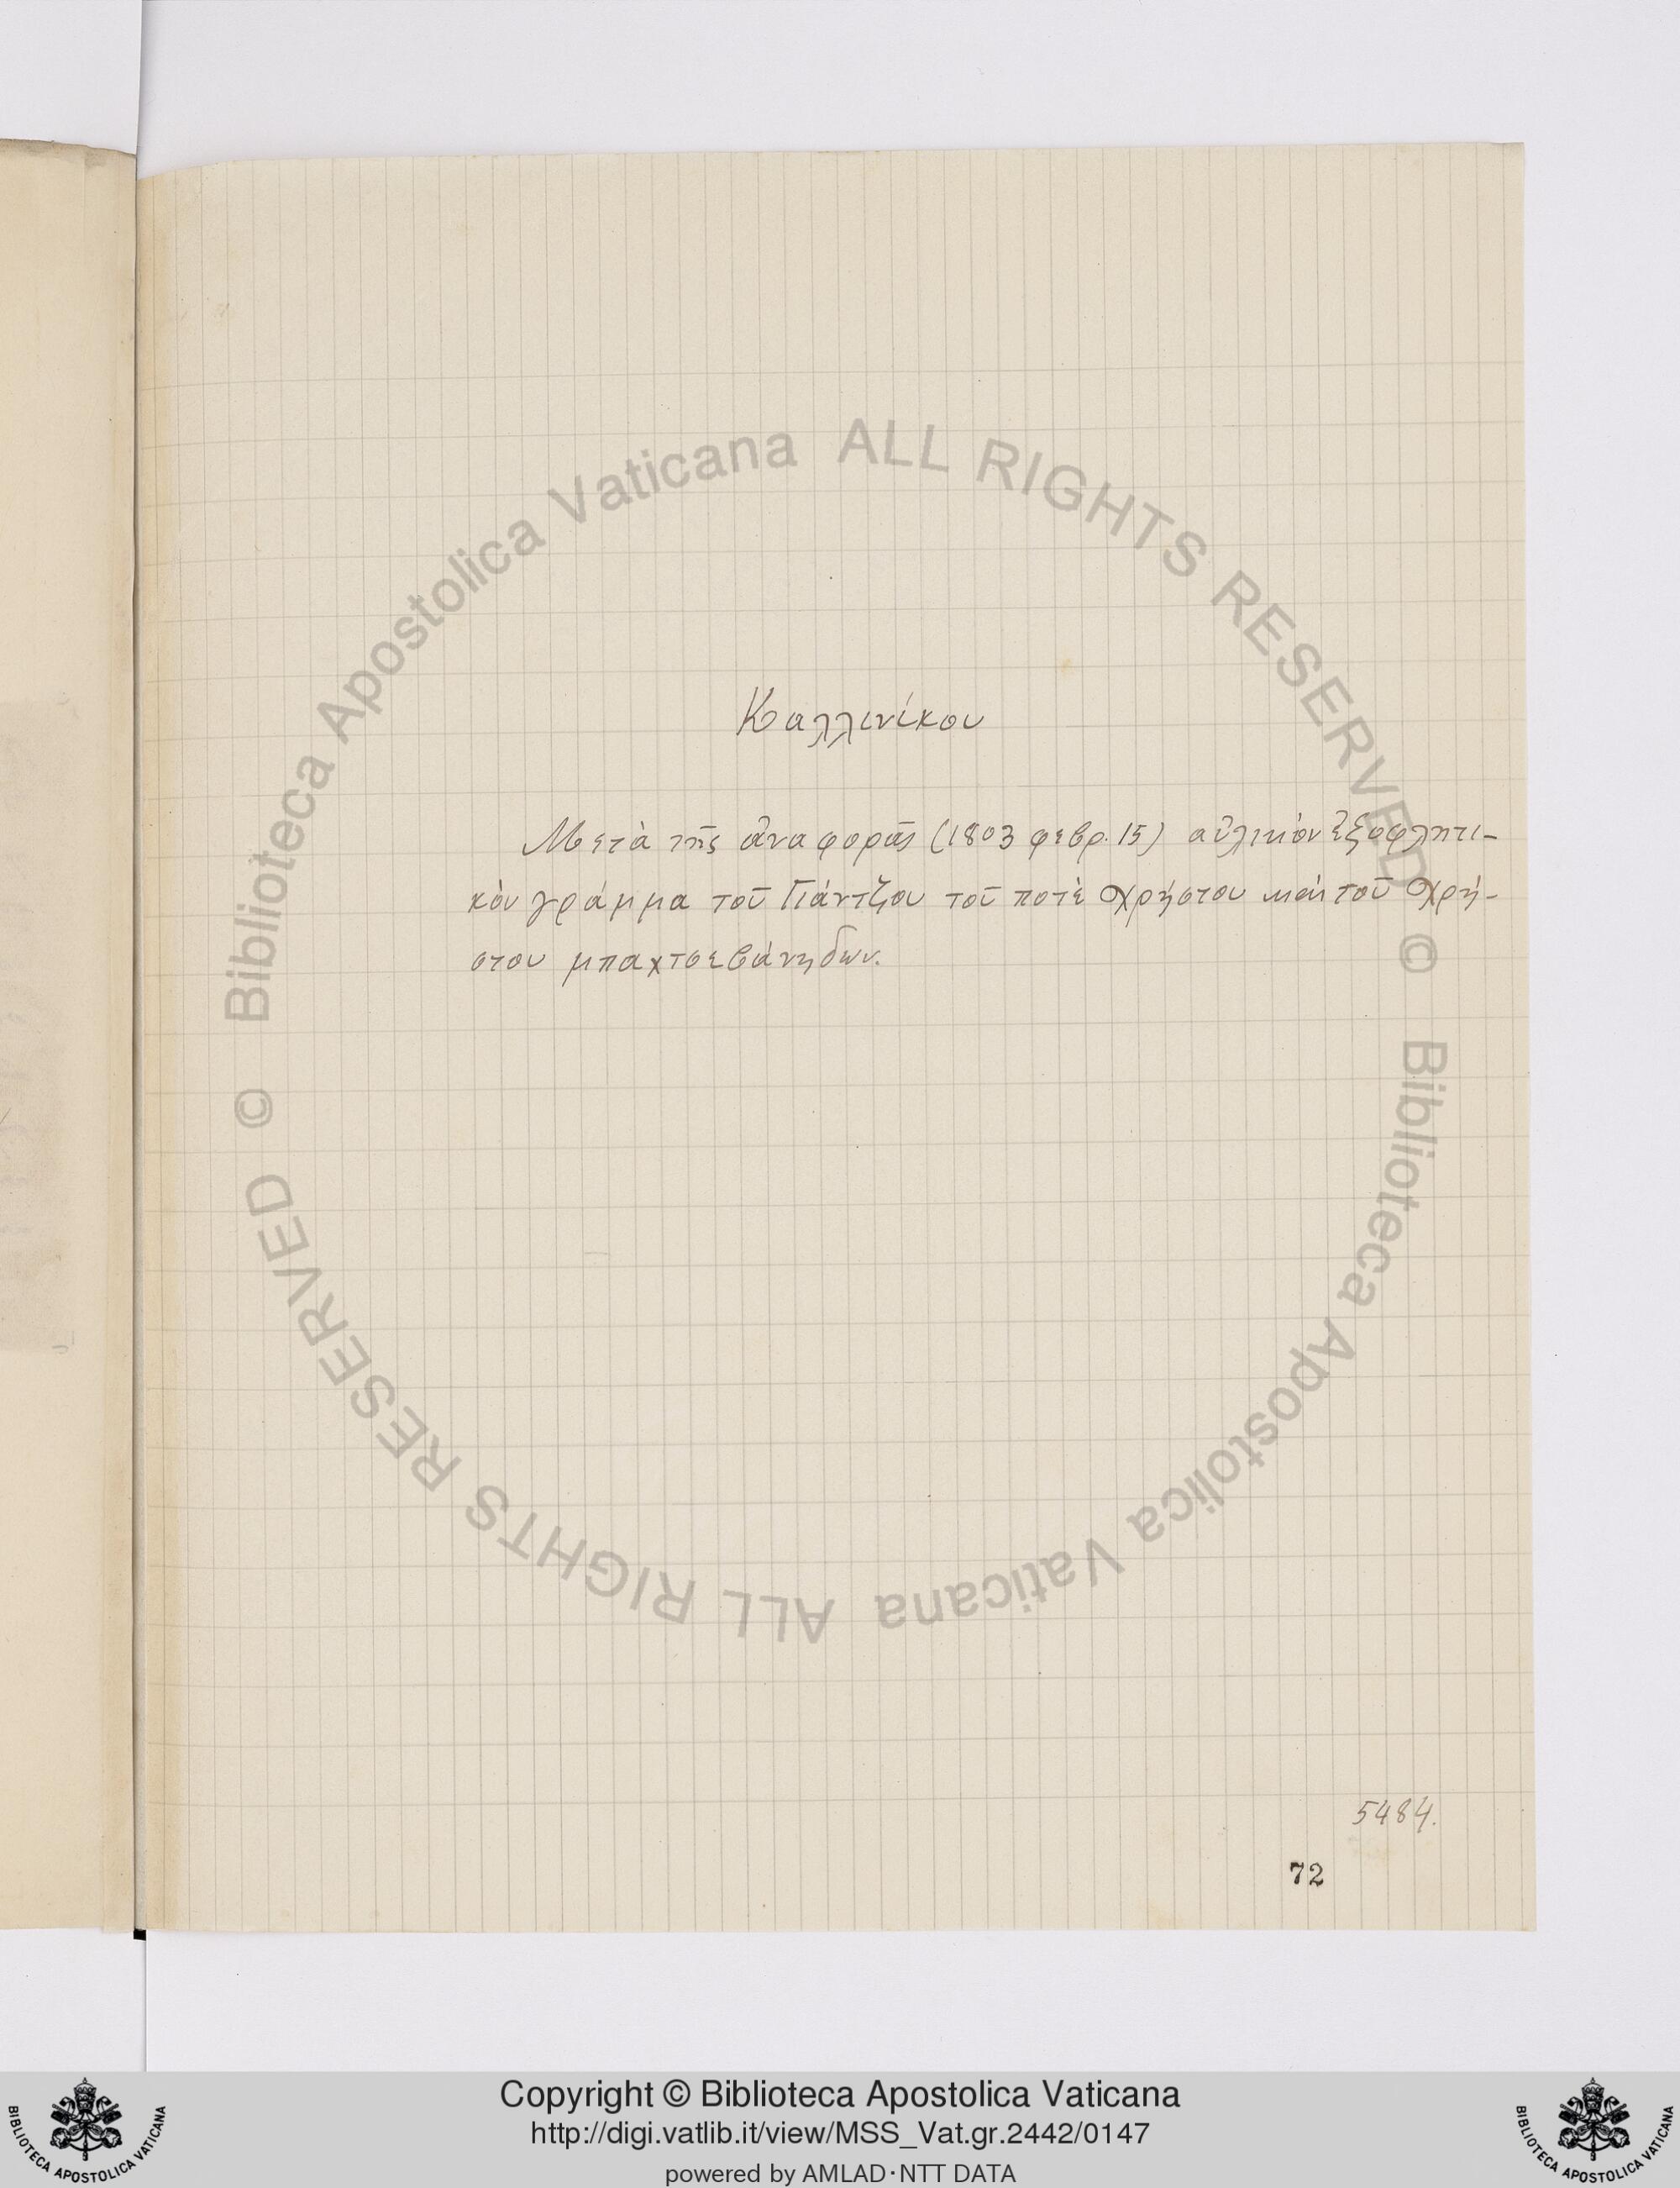 Καλλινίκου
Μετὰ τῆς ἀναφορᾶς (1803 φεβρ. 15) αὐλικὸν ἐξοφλητι-
κὸν γράμμα τοῦ Γιάντζου τοῦ ποτὲ Χρήστου καὶ τοῦ Χρή-
στου μπαχτσεβάνηδων.
5484.
72
© Biblioteca Apostolica Vaticana ALL RIGHTS RESERVED
© Biblioteca Apostolica Vaticana ALL RIGHTS RESERVED
Copyright © Biblioteca Apostolica Vaticana
http://digi.vatlib.it/view/MSS_Vat.gr.2442/0147
powered by AMLAD·NTT DATA
BIBLIOTECA APOSTOLICA VATICANA
BIBLIOTECA APOSTOLICA VATICANA